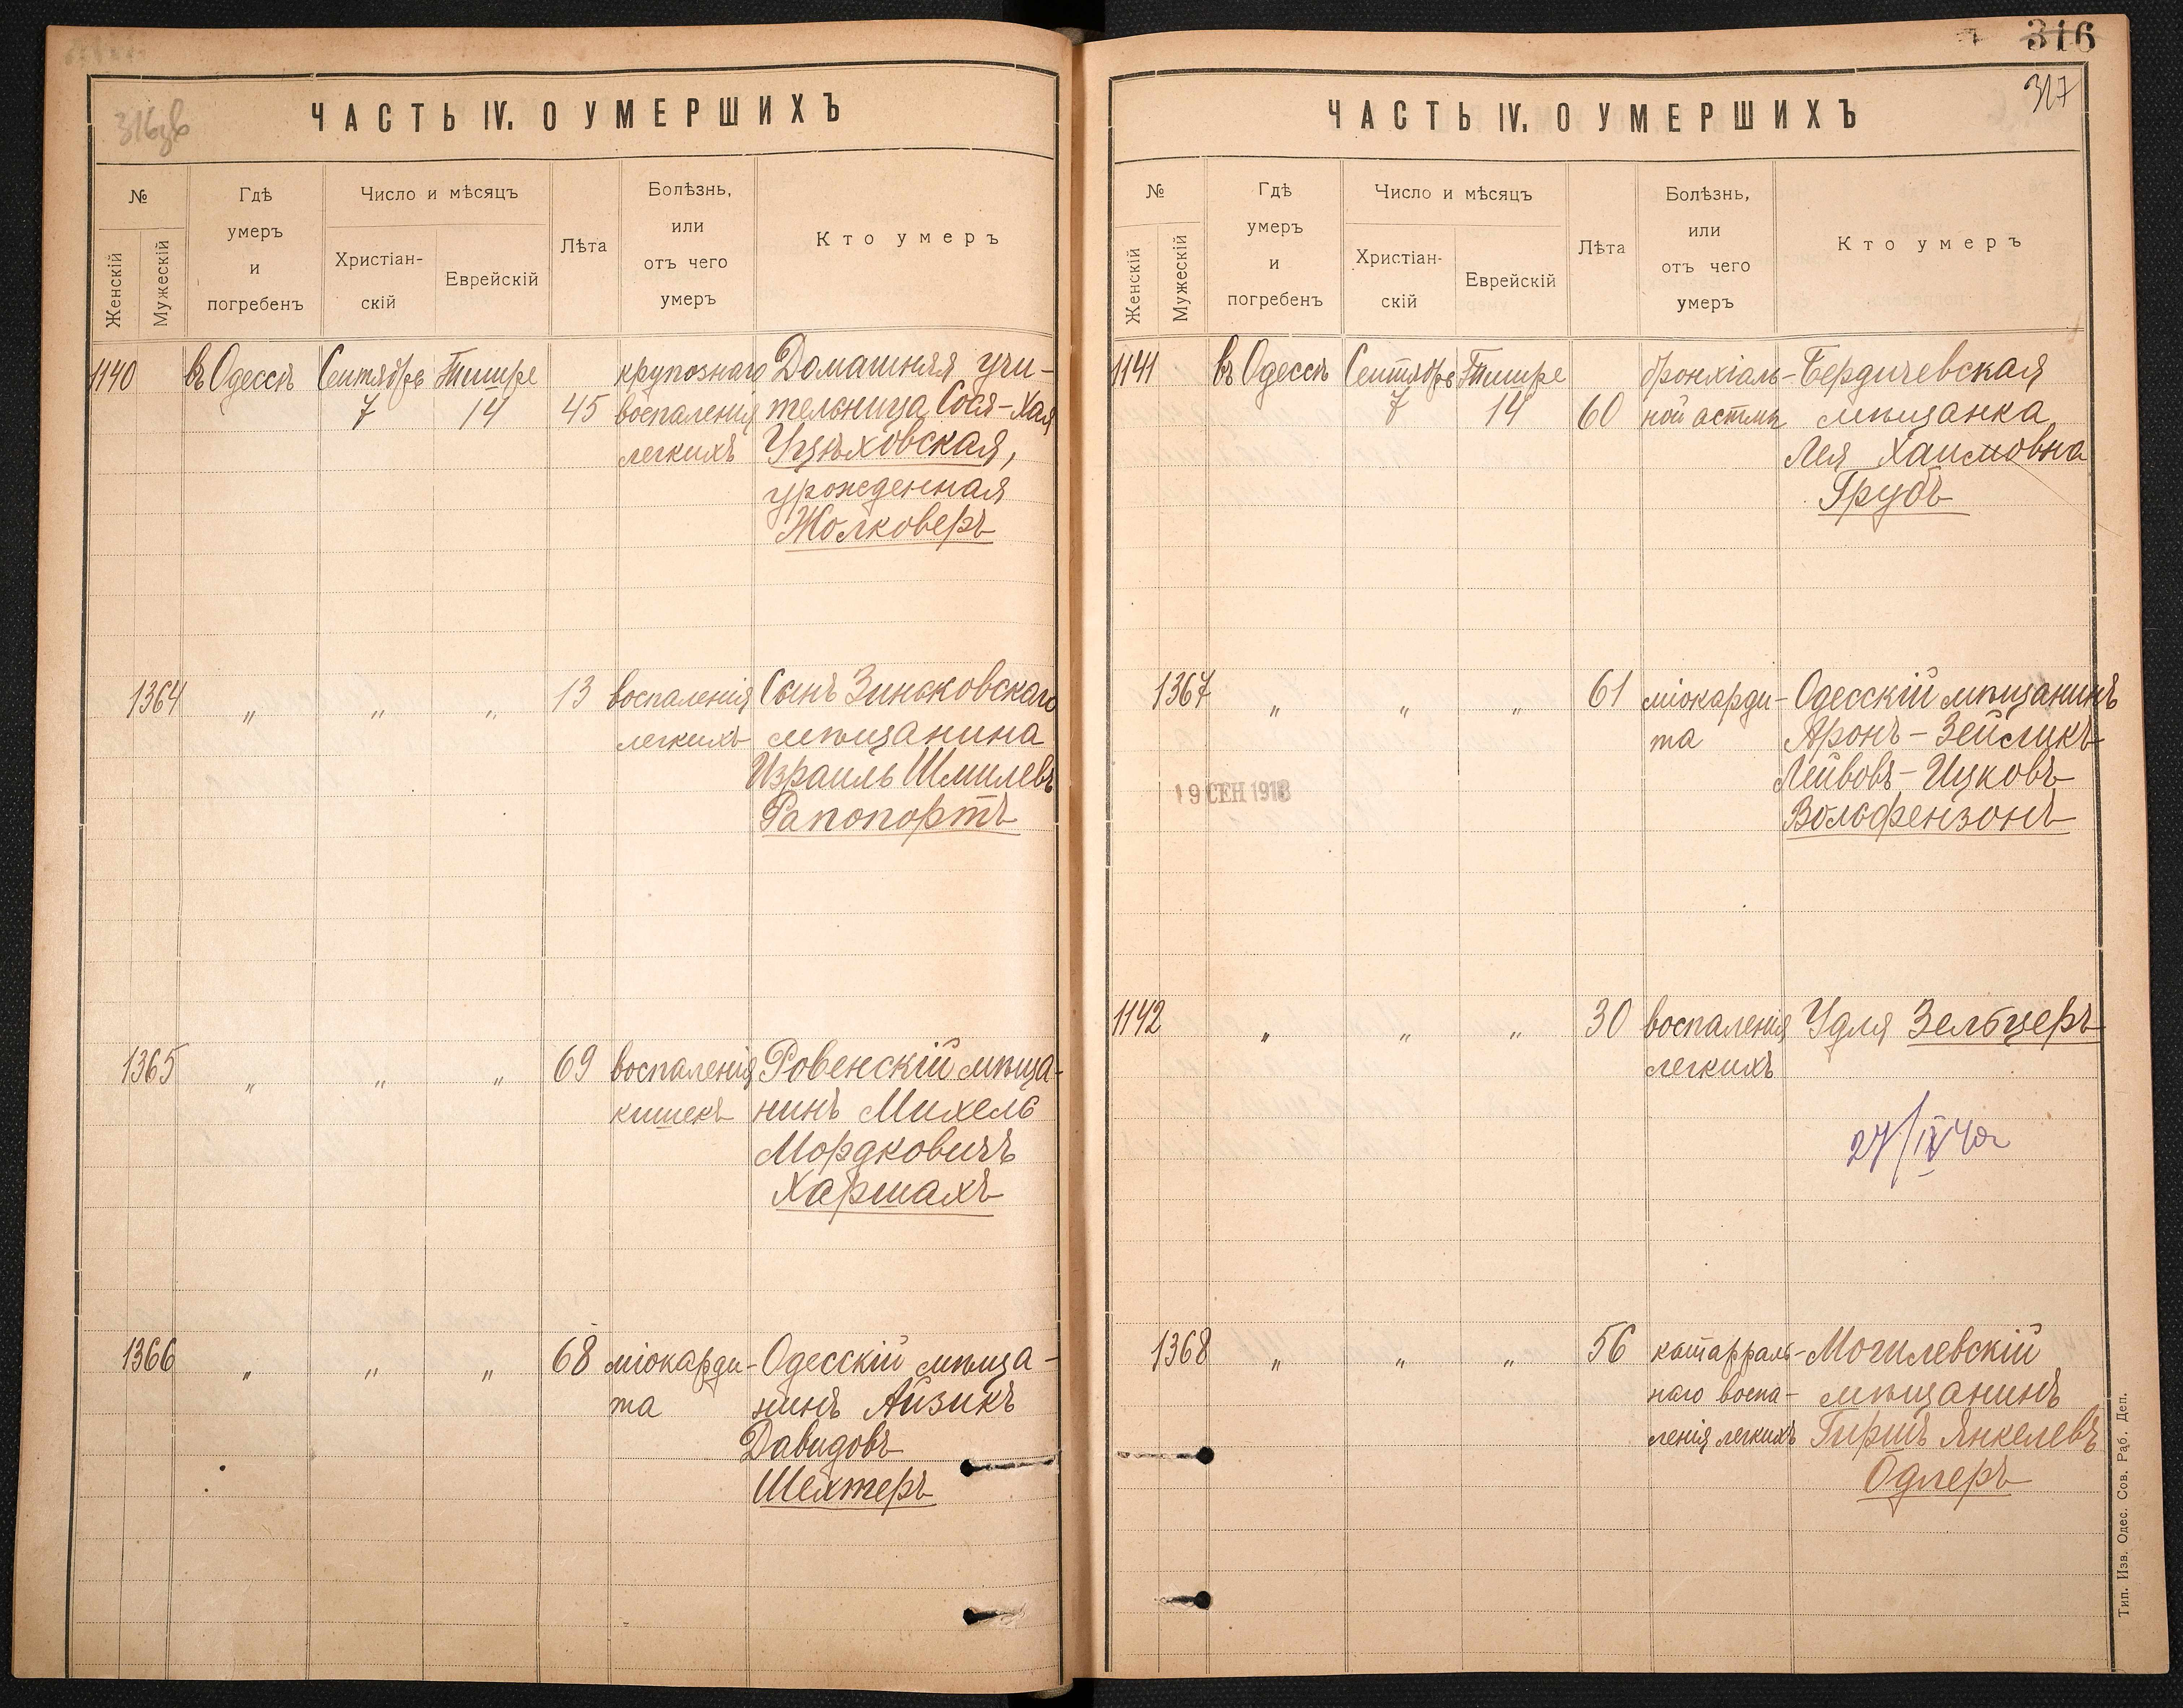 316
316зв
317
ЧАСТЬ IV. О УМЕРШИХЪ
№
Женскій
Мужескій
Гдѣ
умеръ
и
погребенъ
Число и мѣсяцъ
Христіан-
скій
Еврейскій
Лѣта
Болѣзнь,
или
отъ чего
умеръ
Кто умеръ
1140 въ Одессѣ Сентябрь Тишре крупознаго Домашняя учи-
7 14 45 воспаленія тельница Сося-Хая
легкихъ Уцѣховская,
урожденная
Жолковеръ
1364 " " " 13 воспаленія Сынъ Зиньковскаго
легкихъ мѣщанина
Израиль Шмилевъ
Рапопортъ
1365 " " " 69 воспаленія Ровенскій мѣща-
кишекъ нинъ Михель
Мордковичъ
Харшахъ
1366 " " " 68 міокарди- Одесскій мѣща-
та нинъ Айзикъ
Давидовъ
Шехтеръ
ЧАСТЬ IV. О УМЕРШИХЪ
№
Женскій
Мужескій
Гдѣ
умеръ
и
погребенъ
Число и мѣсяцъ
Христіан-
скій
Еврейскій
Лѣта
Болѣзнь,
или
отъ чего
умеръ
Кто умеръ
1141 въ Одессѣ Сентябрь Тишре бронхіаль- Бердичевская
7 14 60 ной астмы мѣщанка
Лея Хаимовна
Грубъ
1367 " " " 61 міокарди- Одесскій мѣщанинъ
та Аронъ-Зейликъ
19 СЕН 1918 Лейвовъ-Ицковъ
Вольфензонъ
1142 " " " 30 воспаленія Удля Зельцеръ
легкихъ
27/IV 40г
1368 " " " 56 катарраль- Могилевскій
наго воспа- мѣщанинъ
ленія легкихъ Гиршъ Янкелевъ
Одлеръ
Тип. Изв. Одес. Сов. Раб. Деп.